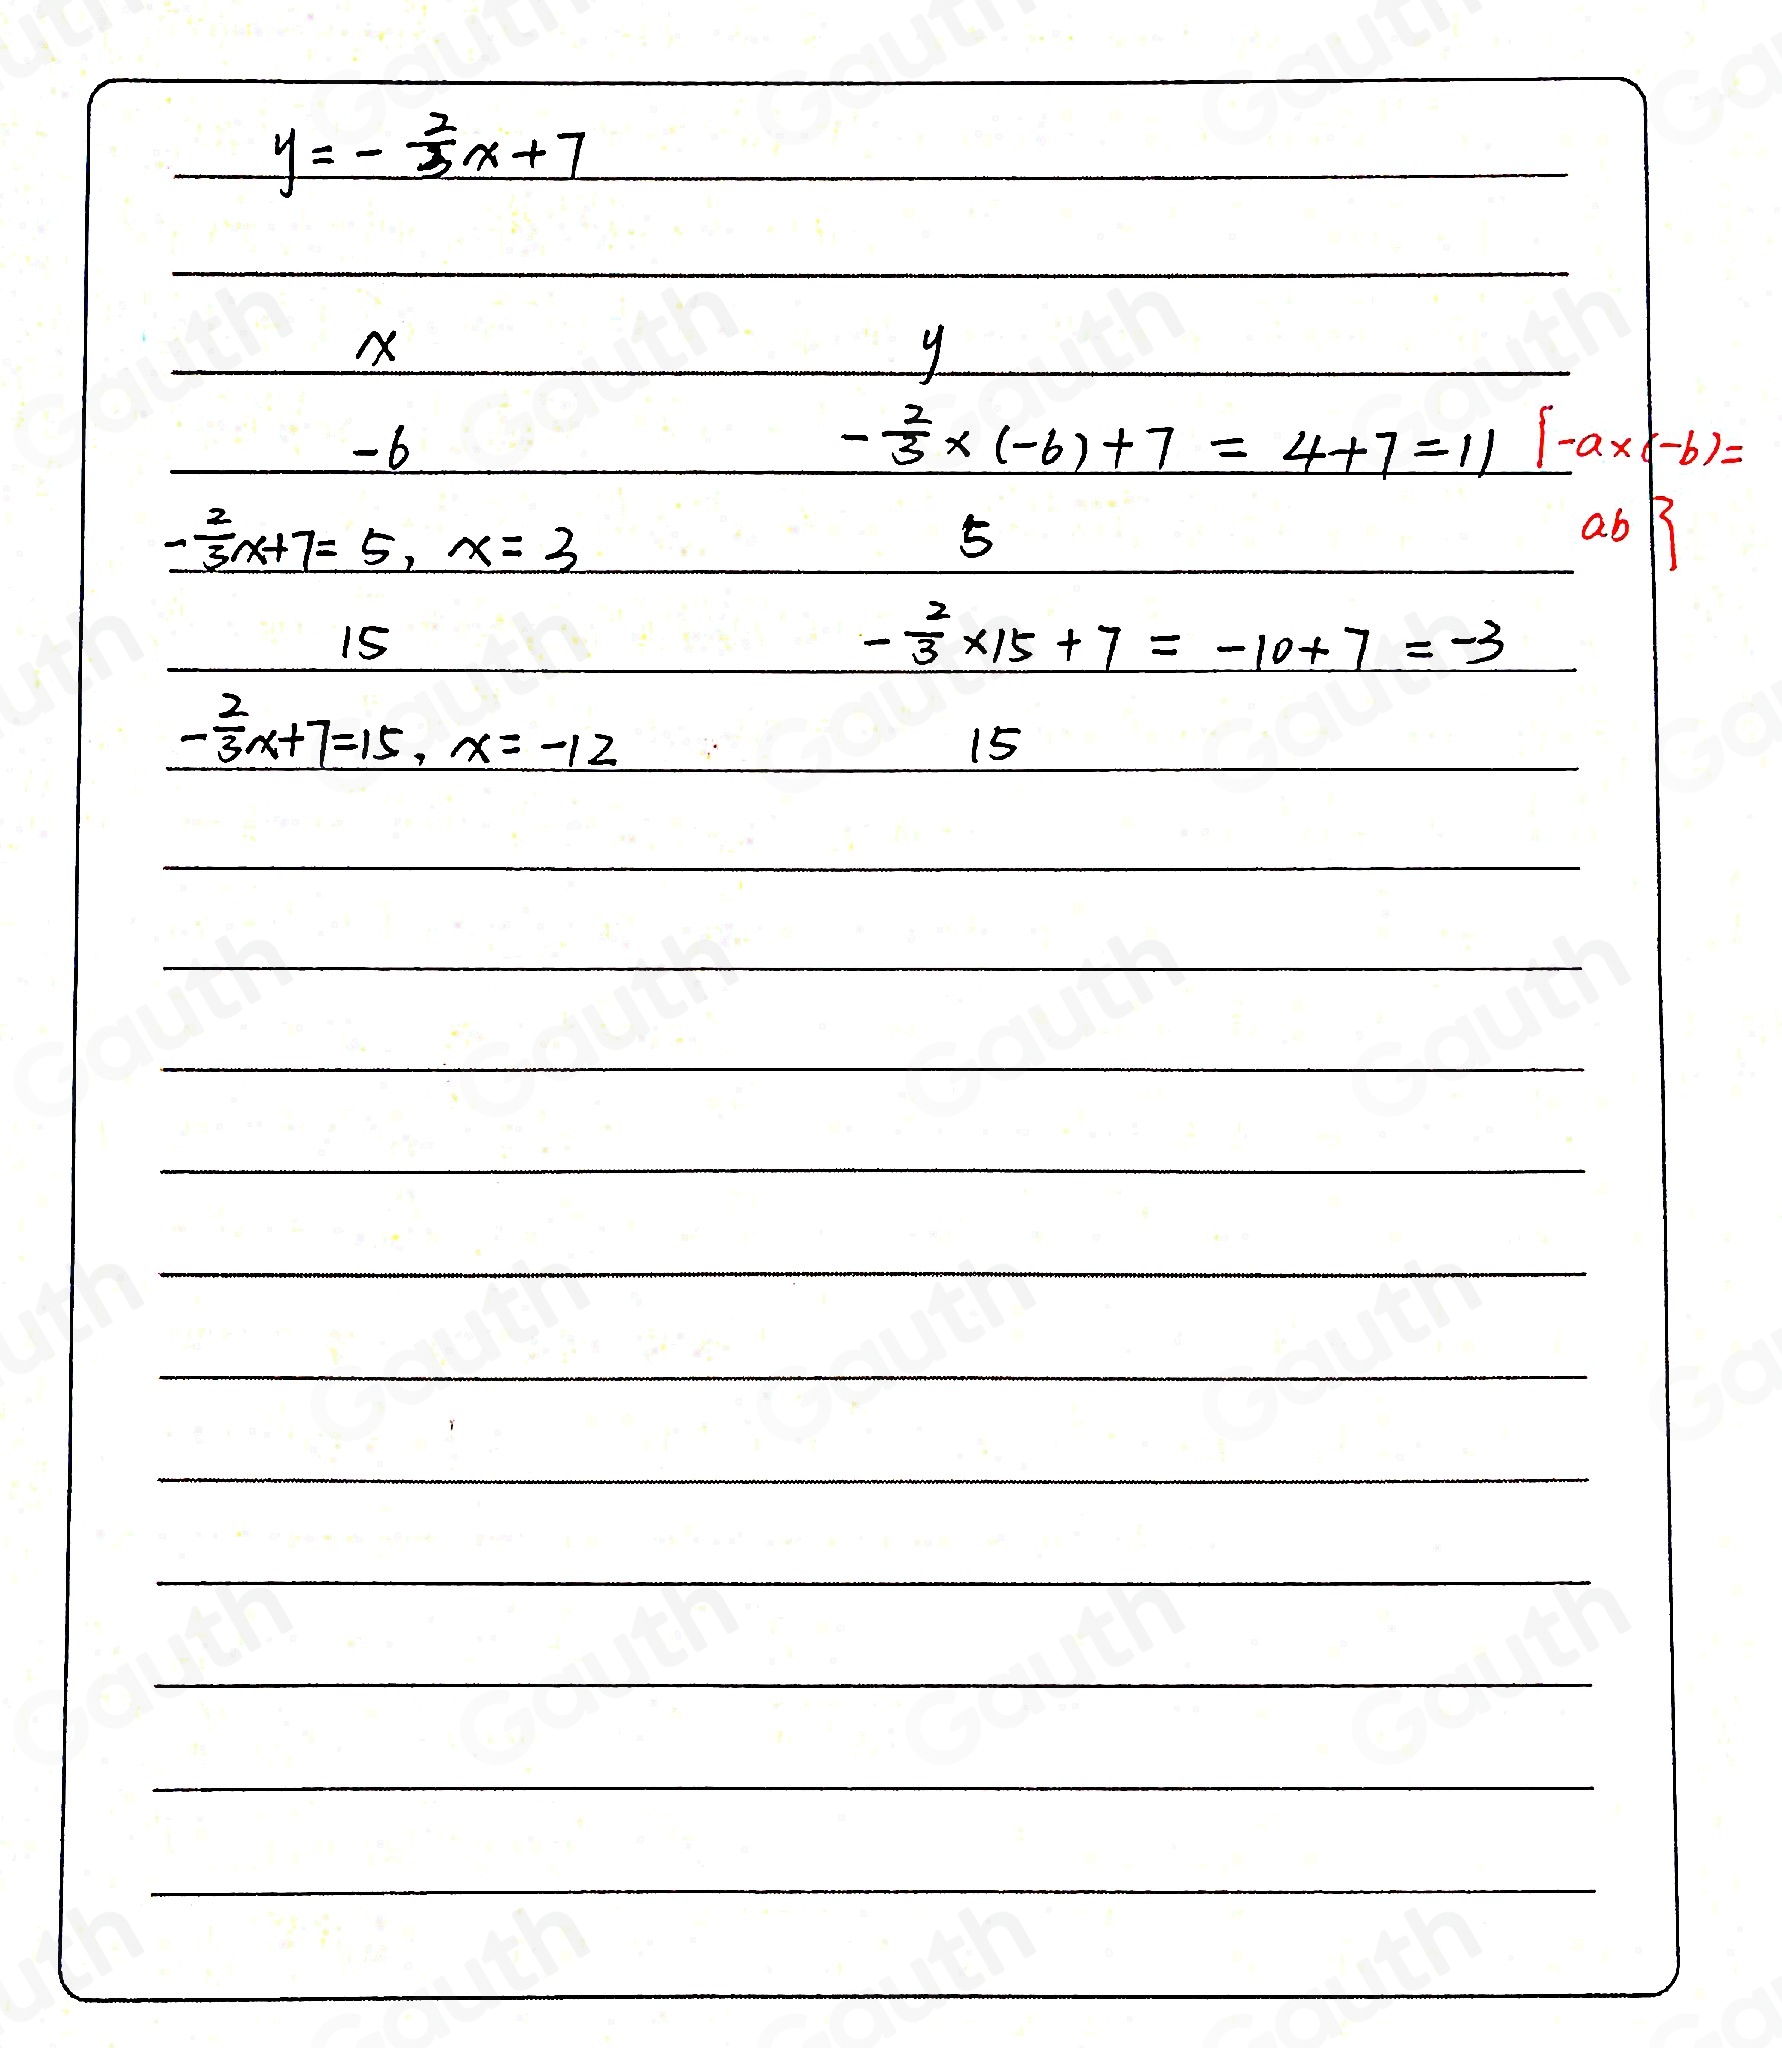 y = - 2/3 x + 7
x y
-6 - 2/3 × (-6) + 7 = 4 + 7 = 11 [-a × (-b) =
- 2/3 x + 7 = 5, x = 3 5 ab}
15 - 2/3 × 15 + 7 = -10 + 7 = -3
- 2/3 x + 7 = 15, x = -12 15
Gauth